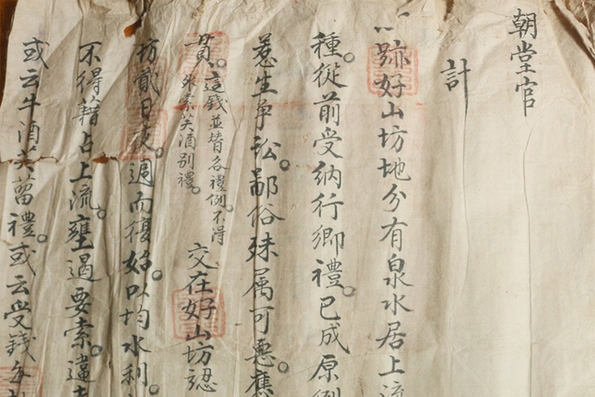 朝堂官
計
跡好山坊地分有泉水居上
種。從前受納行鄉禮。已成原例
惹生爭訟。鄙俗殊属可惡。應
貫。這錢並皆各禮例。不得
外索芙酒別禮。
交在好山坊認
坊貳日夜。週而復始以均水利。
不得藉占上流。壅遏要索。違
或云牛酒芙蔞禮。或云受錢